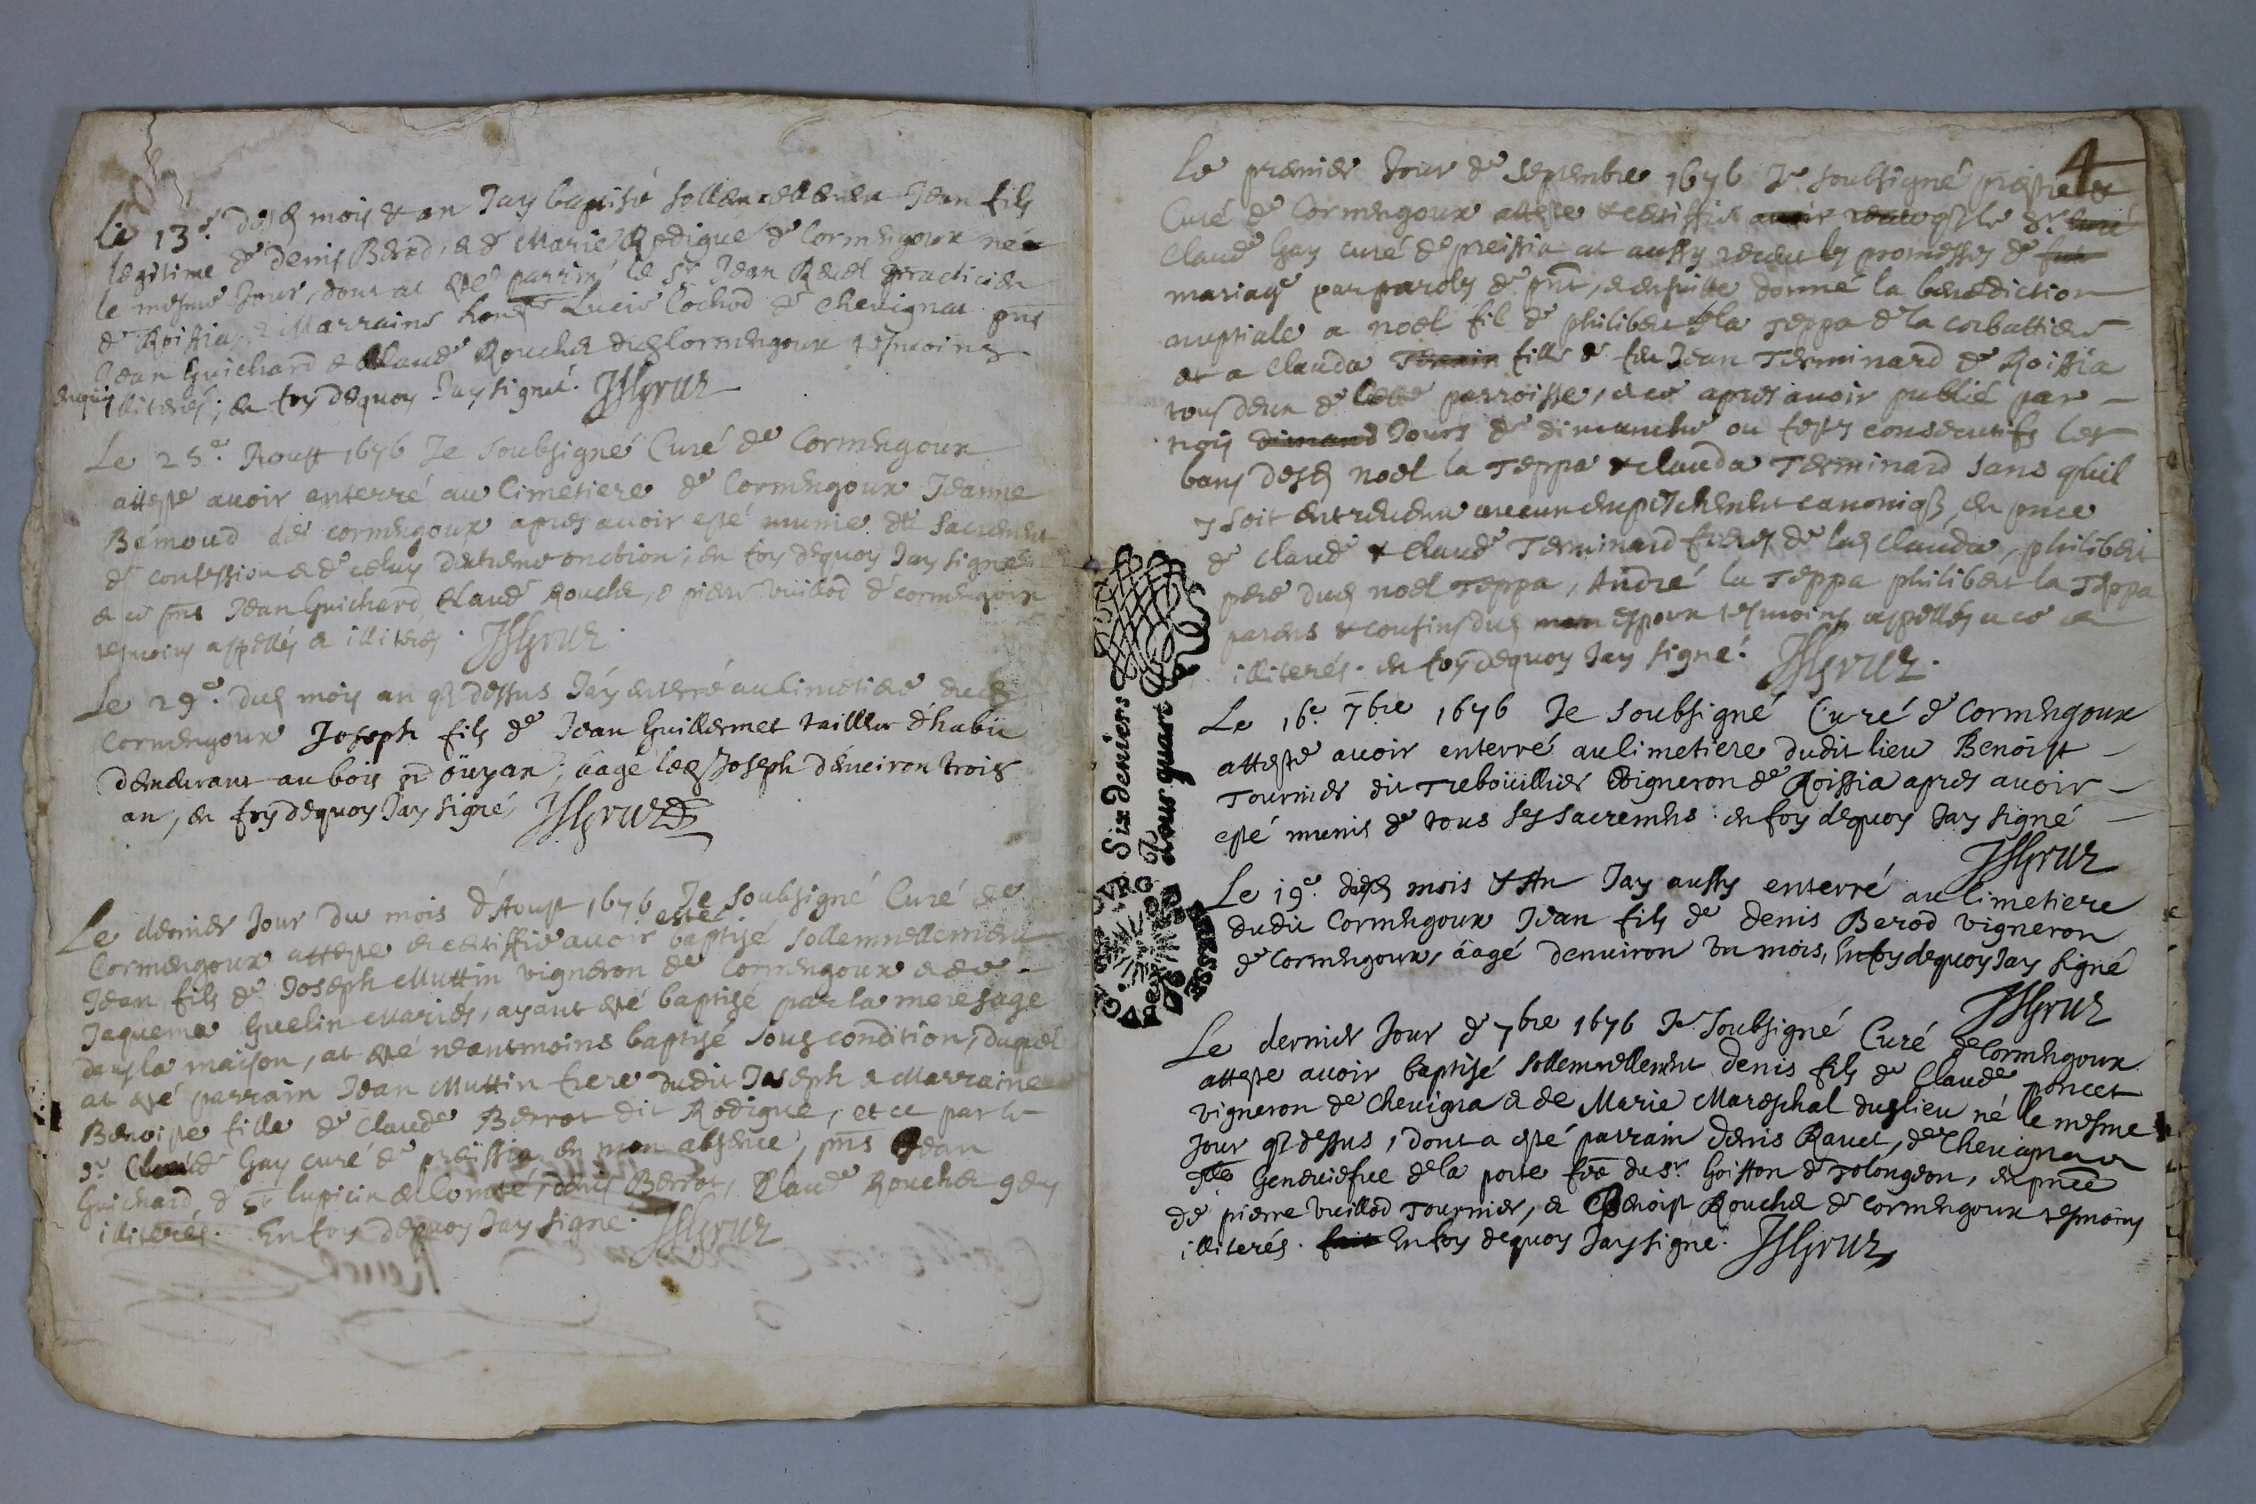 Le 13e. desd mois & an Jay baptisé sollennellement Jean fils
legitime de Denis Berod, & de Marie Rodigue de Cormengoux né
le mesme Jour, dont at esté parrin le Sr. Jean practicien
de Roissia, & Marraine Lucie Cochod de Chevignat pns
Jean Guichard & Claude Rouchez Cormengoux tesmoins
illiterés; en foy dequoy Jay signé.
Le 25e. Aoust 1676 Je soubsigné Curé de Cormengoux
atteste avoir enterré au Cimetiere de Cormengoux Jeanne
de cormengoux apres avoir esté munie
de confession & de celuy dextreme onction; en foy dequoy Jay signé
& ce pns Jean Guichard Claude Rouche, & pierre vuillod de cormengoux
tesmoins appellés & illiterés.
Le 29e. dud mois an q dessus Jay enterré au Cimetiere dud
Cormengoux Joseph fils de Jean Guillermet tailleur d'habit
demeurant au bois ; äagé led Joseph d'environ trois
an, en foy dequoy Jay signé
Le dernier Jour du mois d'Aoust 1676 Je soubsigné Curé de
Cormengoux atteste & certiffie avoir esté baptisé sollemnellement
Jean fils de Joseph Muttin vigneron de Cormengoux & de
Jaquema Guelin Mariés, ayant esté baptisé par la mere sage
dans la maison, at esté neantmoins baptisé sous condition, duquel
at esté parrain Jean Muttin frere dudit Joseph & Marraine
Benoiste fille de Claude Berrot dit Rodigue, et ce par le
Sr Claude Gay curé de preissia en mon absence, pns Jean
Guichard d St lupicin & Comté, denis Berrot, Claude Rouchez
illiterés. En foy dequoy Jay signé.
4
Le premier Jour de Septembre 1676 Je soubsigné prestre &
Curé de Cormengoux atteste & certiffie avoir le Sr curé
Claude Gay curé de preissia at aussy receu les promesses de
mariage par paroles de pnt, & ensuitte donné la benediction
nuptiale a noel fil de philibert de la Teppa de la corbattiere
et a Clauda fille de feu Jean Terminard de Roissia
tous deux de parroisse, & ce apres avoir publié par
trois dimand Jours de dimanche ou festes consecutifs les
bans desd noel la Teppa & clauda Terminard sans quil
y soit entrevenu aucun empeschement canoniq, en pnce
de Claude & Claude Terminard freres de lad Clauda, philibert
pere dud noel Teppa, André la Teppa philibert la Teppa
parens & cousins dud espoux tesmoins appellés a ce &
illiterés. en foy dequoy Jay signé.
Six deniers
Pour quart
Le 16e. 7bre 1676 Je soubsigné Curé de Cormengoux
atteste avoir enterré au Cimetiere dudit lieu Benoist
Tournier dit Trebouillier Vigneron de Roissia apres avoir
esté munis de tous ses sacremens en foy dequoy Jay signé
Le 19e. desd mois & An Jay aussy enterré au Cimetiere
dudit Cormengoux Jean fils de Denis Berod vigneron
de Cormengoux, äagé denviron un mois, En foy dequoy Jay signé
Le dernier Jour de 7bre 1676 Je Soubsigné Curé de Cormengoux
atteste avoir baptisé sollemnellement Denis fils de Claude poncet
vigneron de Chevigna & de Marie Mareschal dud lieu né le mesme
Jour q dessus, dont a esté parrain denis Ravet, de Chevigna &
Geneviefve de la porte du Sr Goisson d Tolongeon, en pnce
de pierre vuillod Tournier, & Benoist Rouche de Cormengoux tesmoins
illiterés. fait En foy dequoy Jay signé.